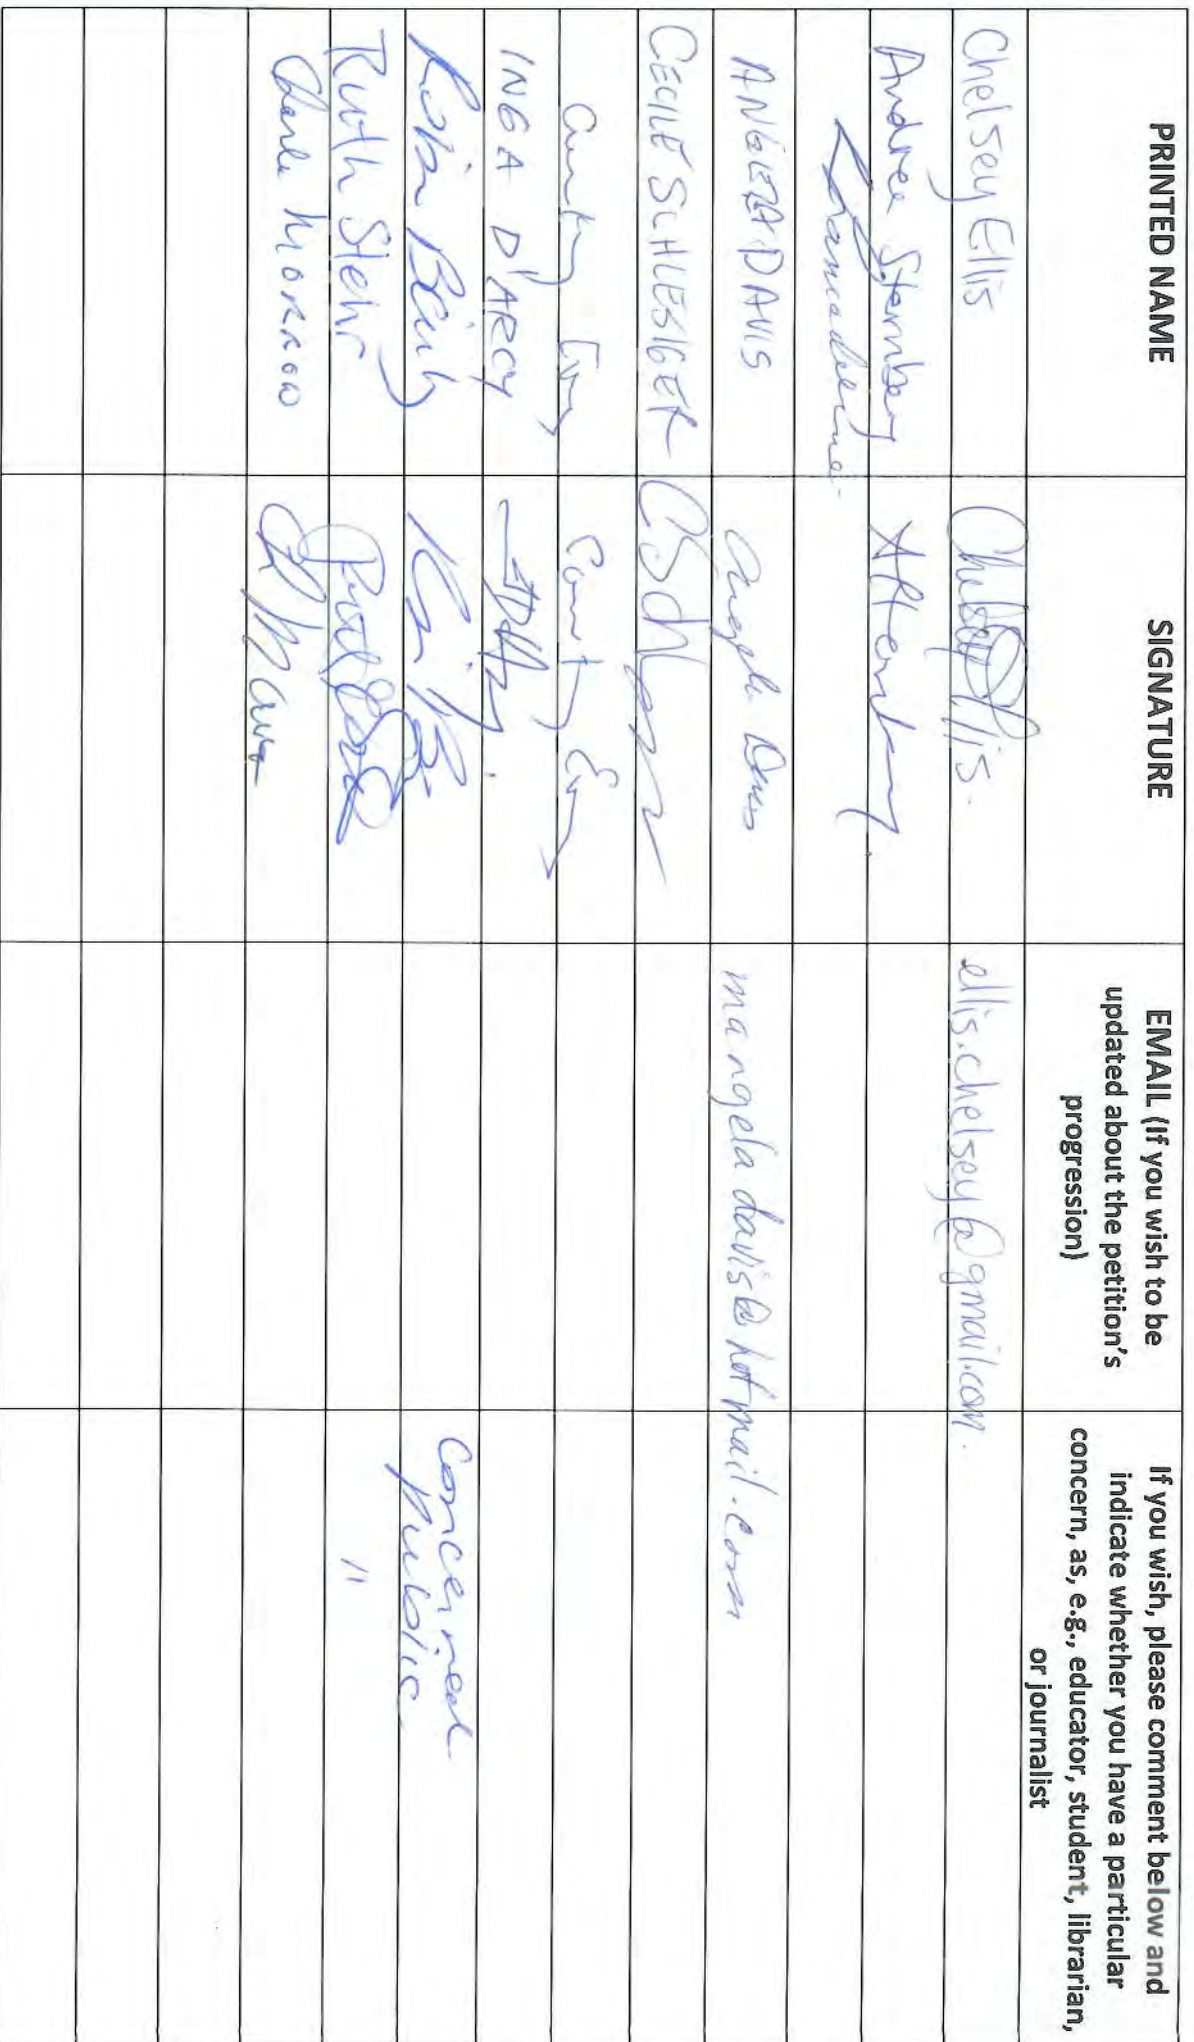 PRINTED NAME
SIGNATURE
EMAIL (If you wish to be
updated about the petition's
progression)
If you wish, please comment below and
indicate whether you have a particular
concern, as, e.g., educator, student, librarian,
or journalist
Chelsey Ellis
Chelsey Ellis.
ellis.chelsey@gmail.com.
Andrea Sternberg
ASternberg
ANGELA DAVIS
Angela Davis
mangeladavis@hotmail.com
CECILE SCHLESIGER
INGA D'ARCY
Robin
Concerned
public
Ruth Stehr
"
Morrow